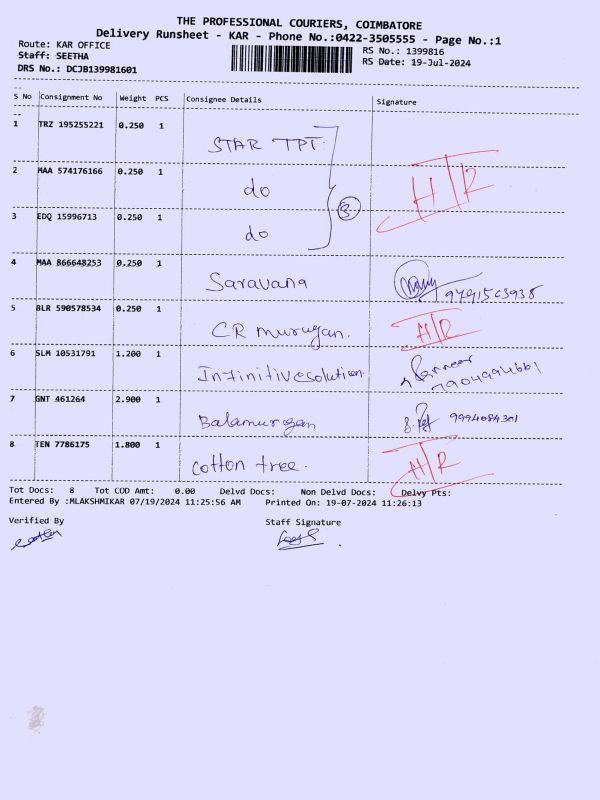 THE PROFESSIONAL COURIERS, COIMBATORE
Delivery Runsheet - KAR - Phone No.:0422-3505555 - Page No.:1
Route: KAR OFFICE RS No.: 1399816
Staff: SEETHA RS Date: 19-Jul-2024
DRS No.: DCJB139981601
S No Consignment No Weight PCS Consignee Details Signature
1 TRZ 195255221 0.250 1 STAR TPT.
2 MAA 574176166 0.250 1 do H/R
3 EDQ 15996713 0.250 1 do 3
4 MAA 866648253 0.250 1 Saravana 9791563938
5 BLR 590578534 0.250 1 CR murugan. H/R
6 SLM 10531791 1.200 1 Infinitivesolution. 7904994661
7 GNT 461264 2.900 1 Balamurugan 9994084301
8 TEN 7786175 1.800 1 cotton tree. H/R
Tot Docs: 8 Tot COD Amt: 0.00 Delvd Docs: Non Delvd Docs: Delvy Pts:
Entered By :MLAKSHMIKAR 07/19/2024 11:25:56 AM Printed On: 19-07-2024 11:26:13
Verified By Staff Signature